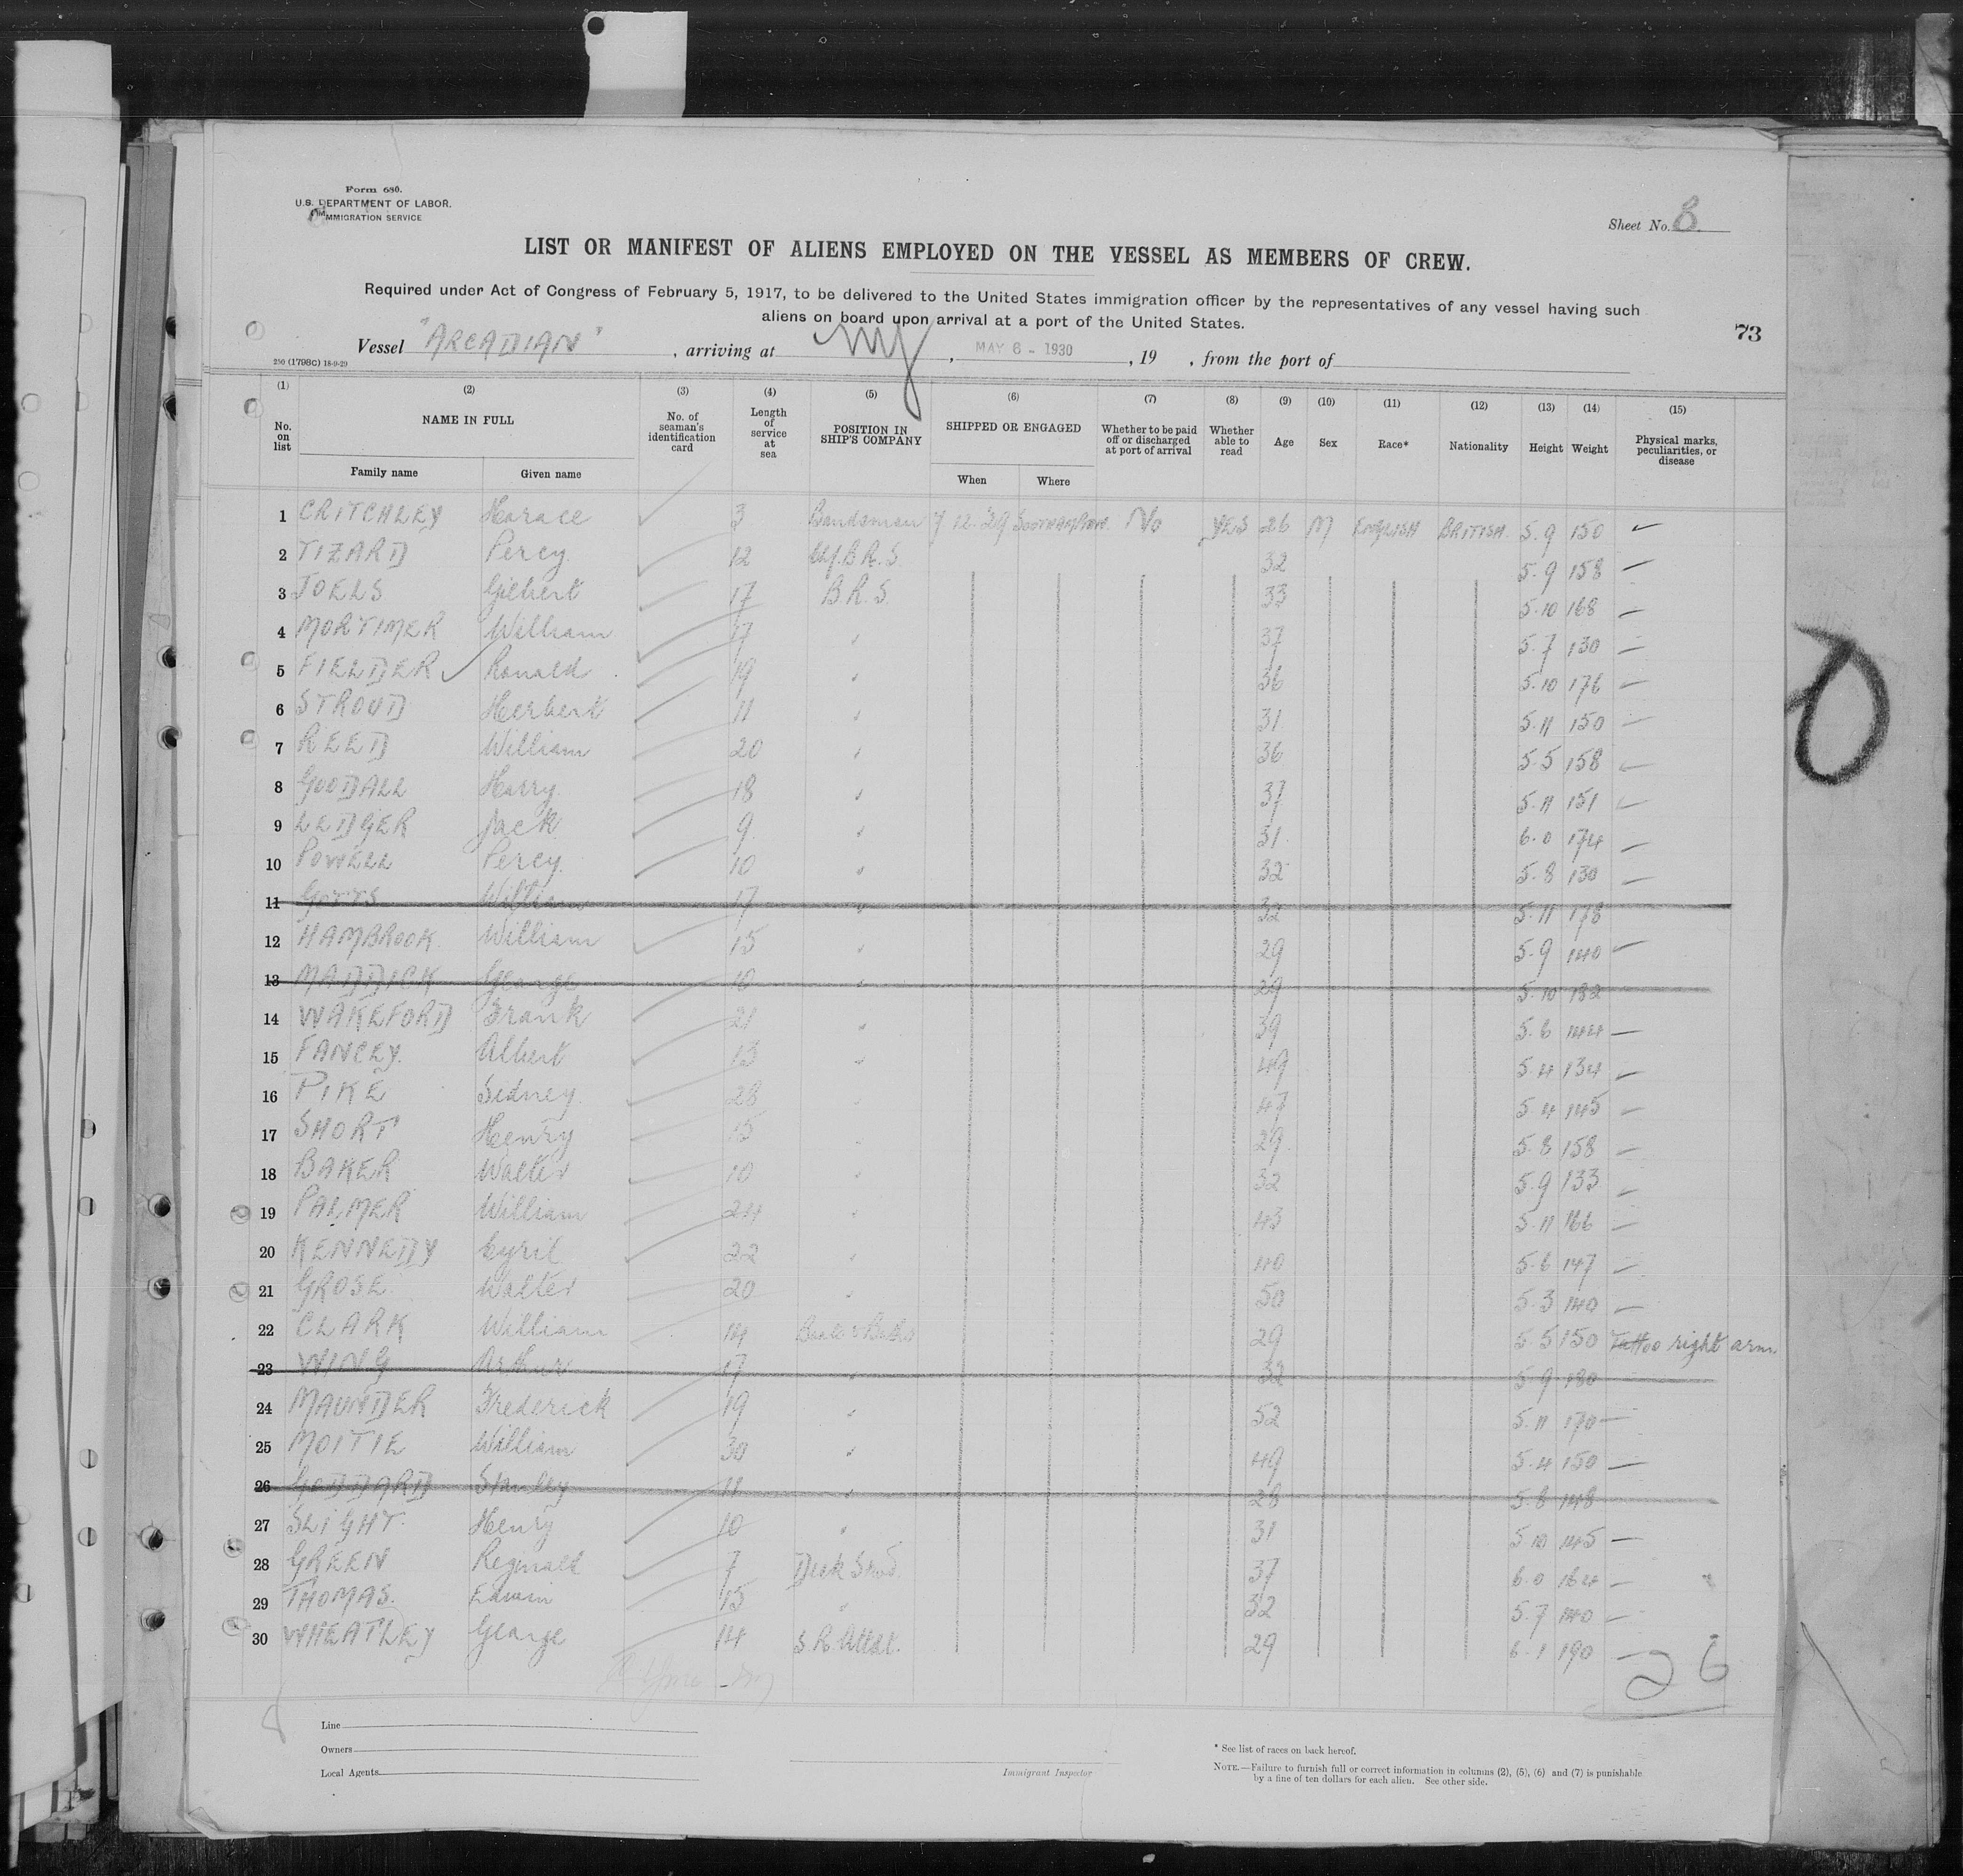 Form 680.
U.S. DEPARTMENT OF LABOR.
IMMIGRATION SERVICE
Sheet No. 8.
LIST OR MANIFEST OF ALIENS EMPLOYED ON THE VESSEL AS MEMBERS OF CREW.
Required under Act of Congress of February 5, 1917, to be delivered to the United States immigration officer by the representatives of any vessel having such
aliens on board upon arrival at a port of the United States.
73
Vessel "ARCADIAN", arriving at NY, MAY 6 - 1930, 19 , from the port of
250 (1798C) 18-9-29
(1) (2) (3) (4) (5) (6) (7) (8) (9) (10) (11) (12) (13) (14) (15)
No. on list NAME IN FULL Family name Given name No. of seaman's identification card Length of service at sea POSITION IN SHIP'S COMPANY SHIPPED OR ENGAGED When Where Whether to be paid off or discharged at port of arrival Whether able to read Age Sex Race* Nationality Height Weight Physical marks, peculiarities, or disease
1 CRITCHLEY Horace 3 Bandsman 7 12.'29 SOUTHAMPTON No YES 26 M ENGLISH BRITISH 5.9 150
2 TIZARD Percy 12 Chf.B.R.S. 32 5.9 158
3 JOELS Gilbert 17 B.R.S. 33 5.10 168
4 MORTIMER William 17 37 5.7 130
5 FIELDER Ronald 19 36 5.10 176
6 STROUD Herbert 11 31 5.11 150
7 REED William 20 36 5.5 158
8 GOODALL Harry 18 37 5.11 151
9 LEDGER Jack 9 31 6.0 174
10 POWELL Percy 10 32 5.8 130
11 William 17 32 5.11 178
12 HAMBROOK William 15 29 5.9 140
13 MADDICK George 10 29 5.10 182
14 WAKEFORD Frank 21 39 5.6 144
15 FANCEY. Albert 13 49 5.4 134
16 PIKE Sidney 28 47 5.4 145
17 SHORT Henry 15 29 5.8 158
18 BAKER Walter 10 32 5.9 133
19 PALMER William 24 43 5.11 166
20 KENNEDY Cyril 22 40 5.6 147
21 GROSE Walter 20 50 5.3 140
22 CLARK William 14 29 5.5 150 Tattoo right arm
23 WING Arthur 17 32 5.9 180
24 MAUNDER Frederick 19 52 5.11 170
25 MOITIE William 30 49 5.4 150
26 GODDARD Stanley 11 28 5.8 148
27 SLIGHT. Henry 10 31 5.10 145
28 GREEN Reginald 7 Deck Stwd. 37 6.0 164
29 THOMAS. Edwin 15 32 5.7 140
30 WHEATLEY George 14 S.R. Attdt. 29 6.1 190
26
Line
Owners
Local Agents
Immigrant Inspector
* See list of races on back hereof.
NOTE.—Failure to furnish full or correct information in columns (2), (5), (6) and (7) is punishable
by a fine of ten dollars for each alien. See other side.